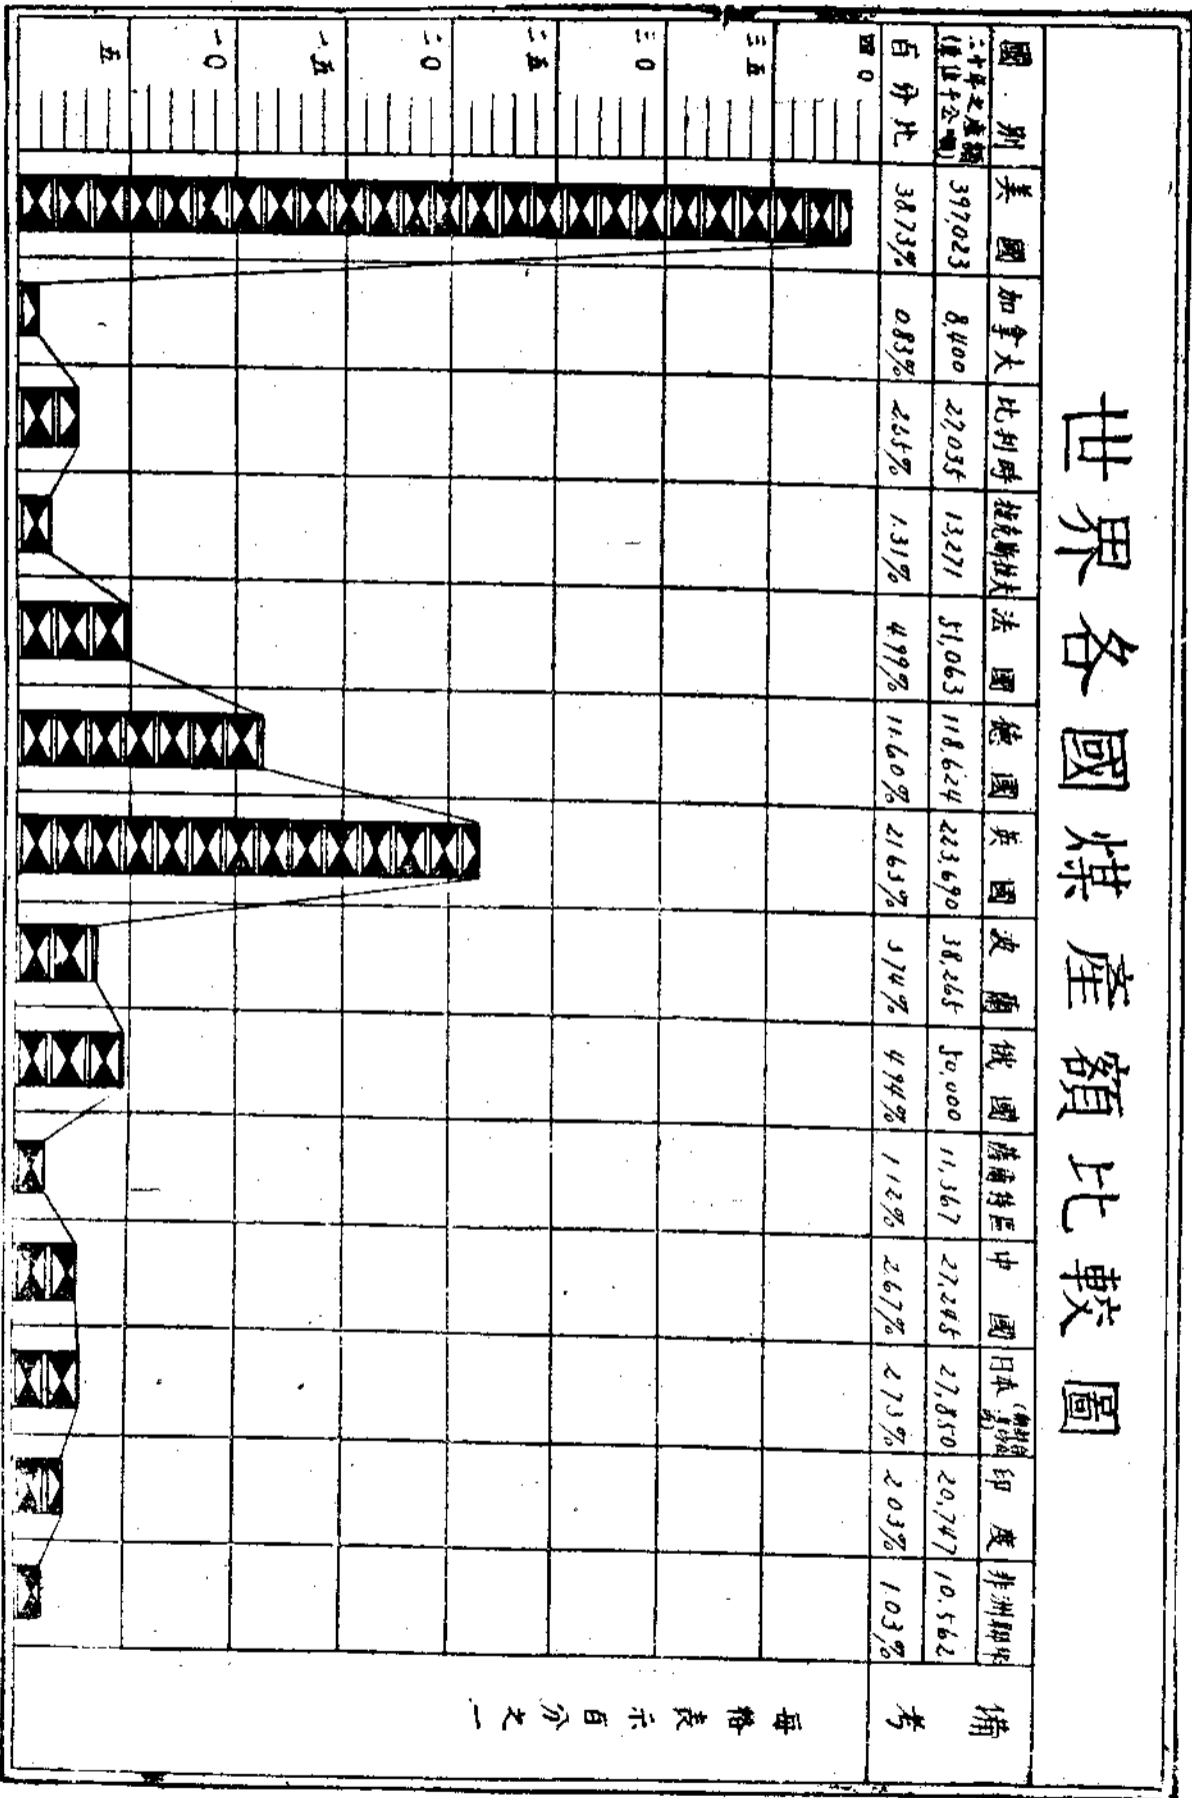 世界各國煤產額比較圖
國別 美國 加拿大 比利時 捷克斯拉夫 法國 德國 英國 波蘭 俄國 薩爾特區 中國 日本 印度 非洲聯邦 備考
二十年之產額 397,023 8,400 27,035 13,271 51,063 118,624 223,690 38,265 50,000 11,367 27,245 27,850 20,747 10,562
百分比 38.73% 0.83% 2.65% 1.31% 4.99% 11.60% 21.63% 3.74% 4.94% 1.12% 2.67% 2.73% 2.03% 1.03%
四〇
三五
三〇
二五
二〇
一五
一〇
五
每格表示百分之一